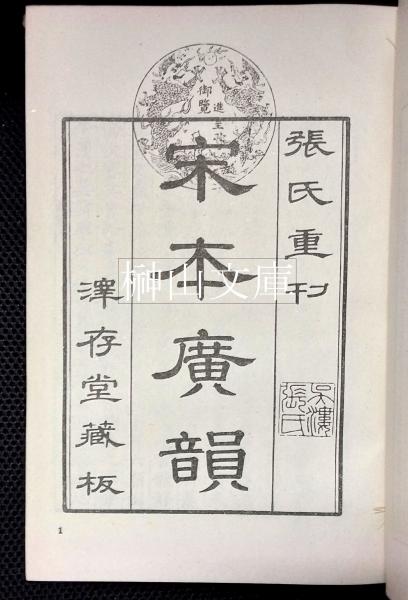 進呈
御覽
張氏重刊
吳漊張氏
宋本廣韻
澤存堂藏板
榊山文庫
1